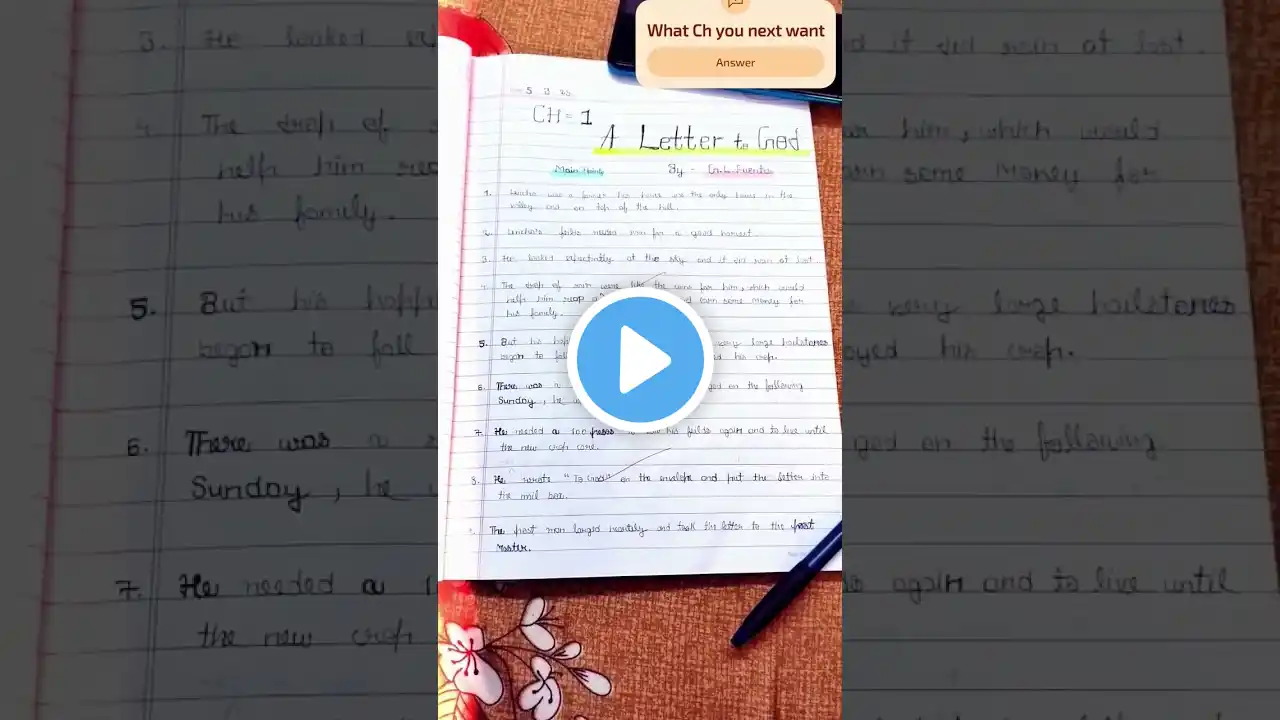 What Ch you next want
Answer
5 3 25
CH = 1
A Letter to God
Main Points
By - G.L. Fuentes
1. Lencho was a farmer his house was the only house in the
valley and on top of the hill.
2. Lencho's feilds needed him for a good harvest.
3. He looked at the sky and it did rain at last.
4. The drop of rain were like the coins for him, which would
help him reap and earn some money for
his family.
5. But his happ very large hailstones
began to fall oyed his crop.
6. There was a ged on the following
Sunday, he
7. He needed a 100 pesos to sow his feilds again and to live until
the new crop core.
8. He wrote "To God" on the envelope and put the letter into
the mil box.
The post man larged heartely and took the letter to the post
Master.